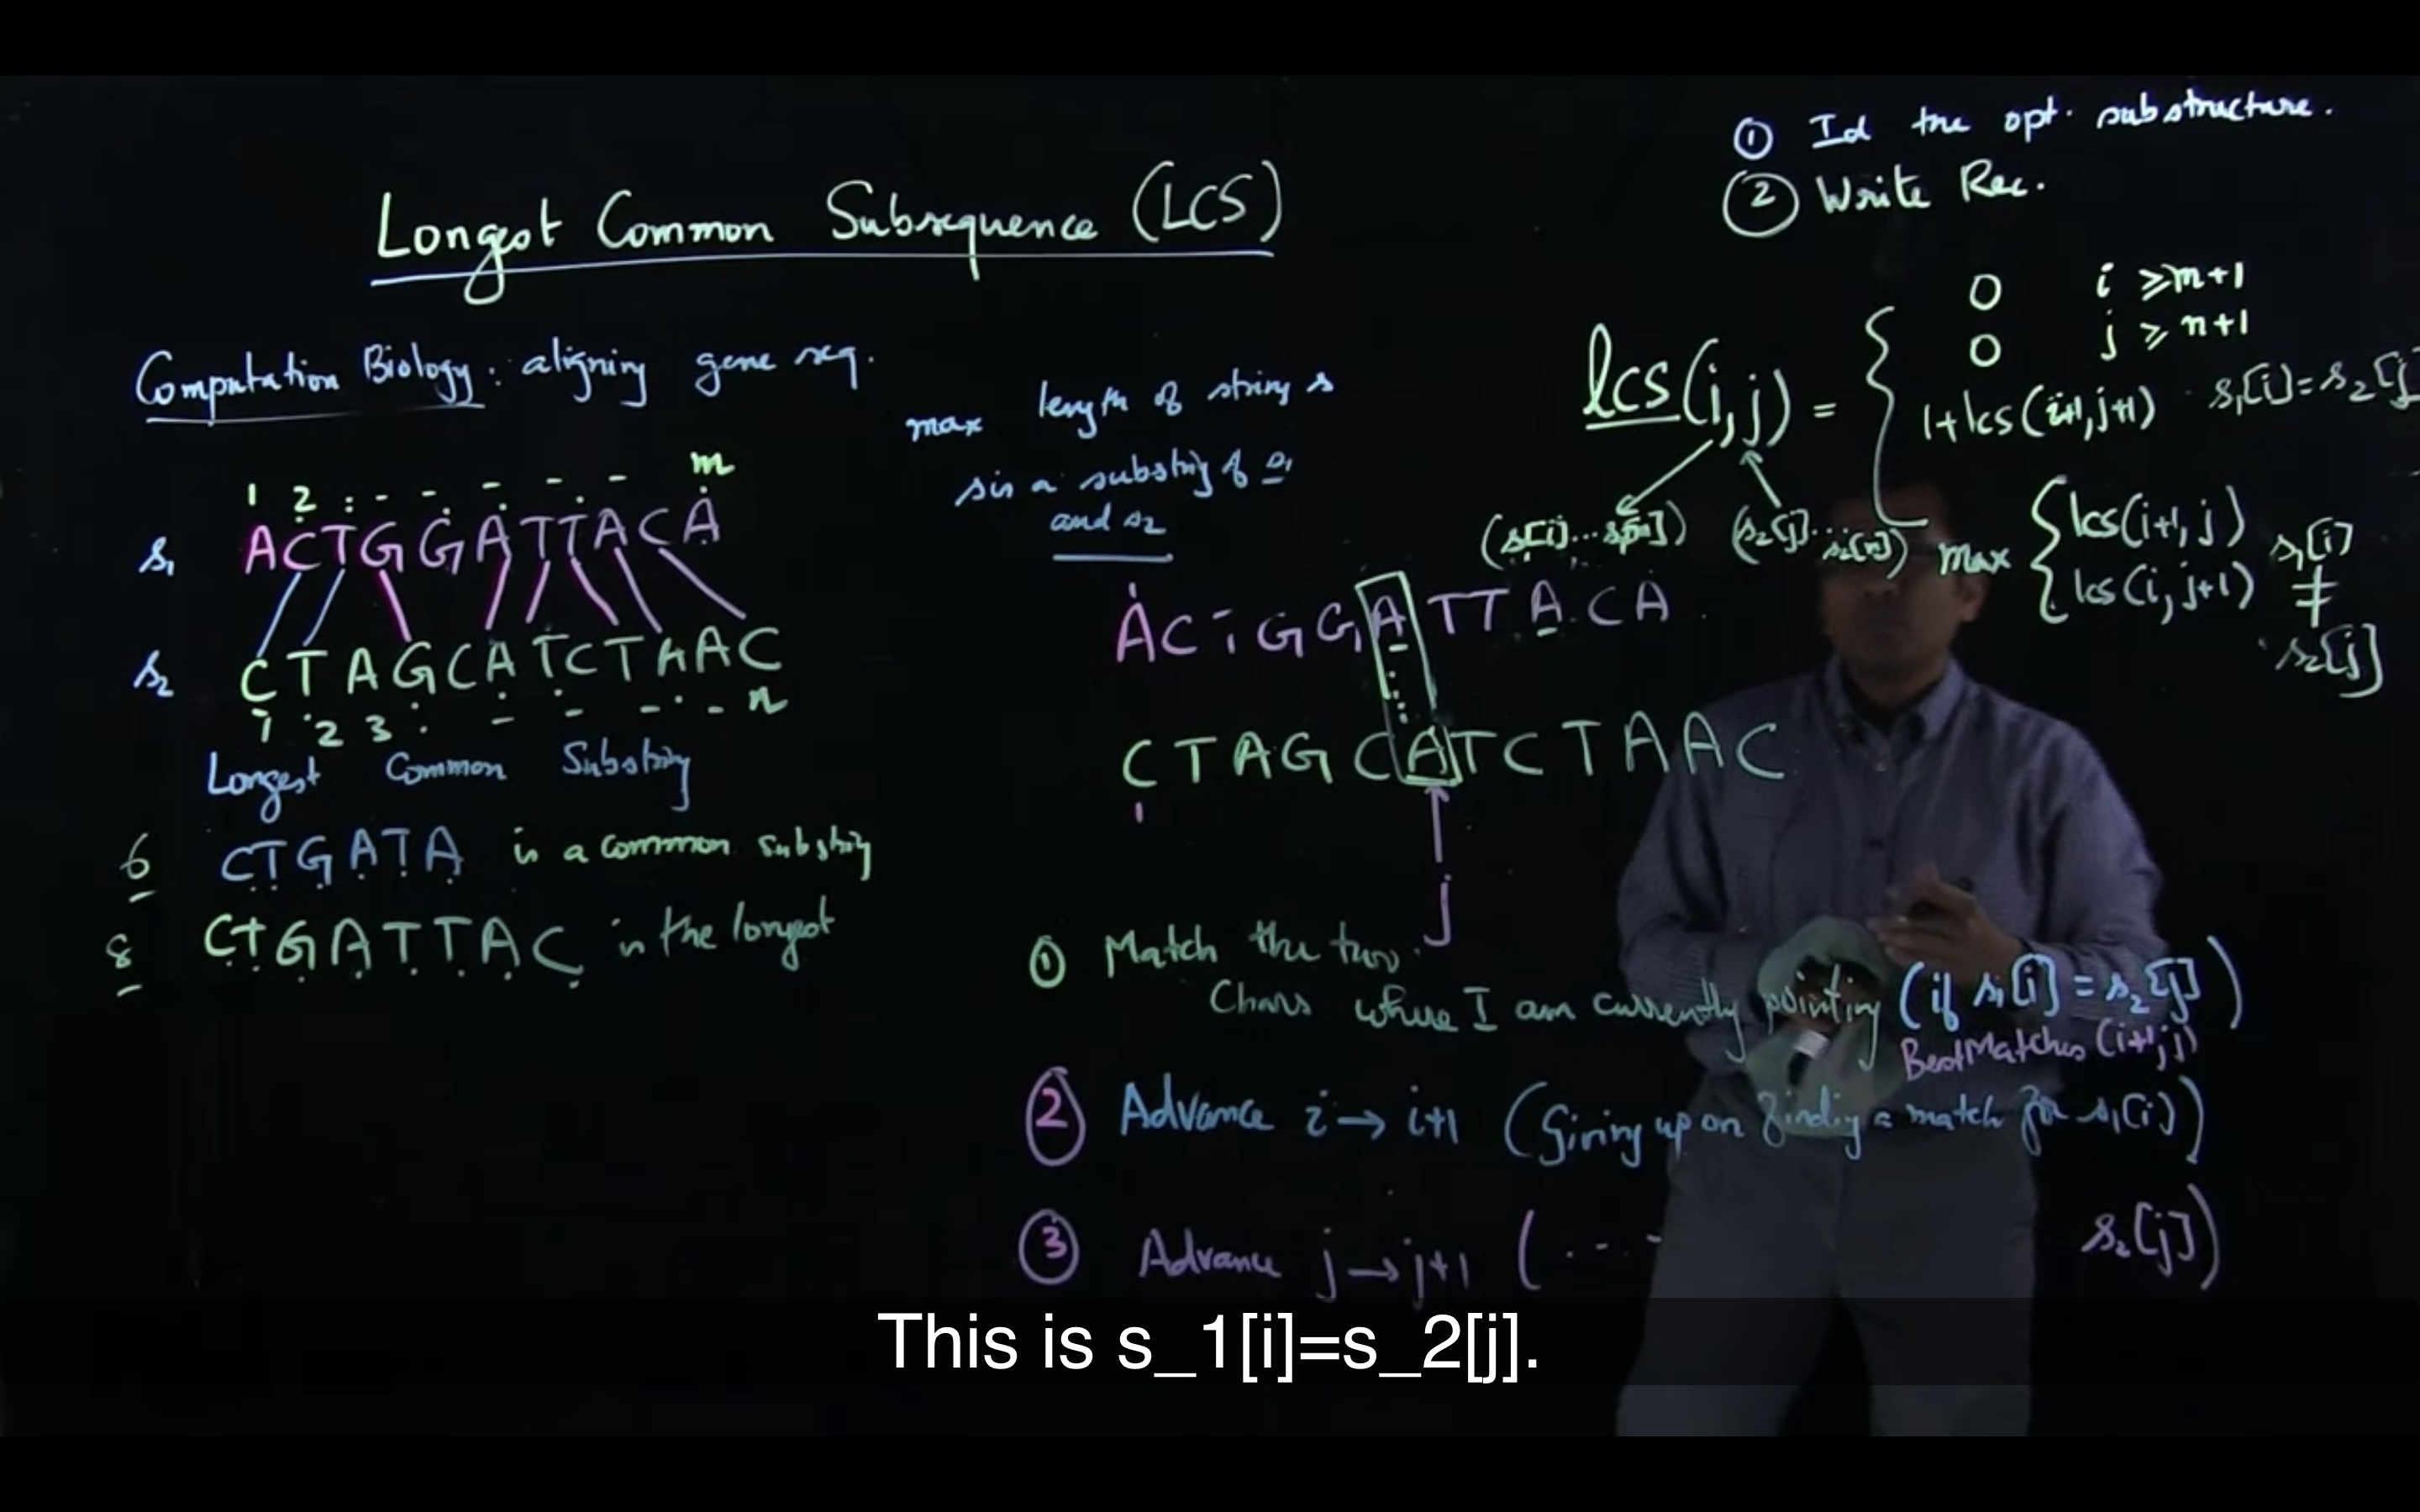 Longest Common Subsequence (LCS)
Computation Biology: aligning gene seq.
1 2 : - - - - - m
s1 ACTGGATTACA
s2 CTAGCATCTAAC
1 2 3 : - - - - n
Longest Common Substring
6 CTGATA is a common substring
8 CTGATTAC is the longest
max length of string s
s is a substring of s1
and s2
① Id the opt. substructure.
② Write Rec.
lcs(i,j) = {
0 i ≥ m+1
0 j ≥ n+1
1+lcs(i+1,j+1) s1[i]=s2[j]
max { lcs(i+1, j)
lcs(i, j+1)
s1[i]
≠
s2[j]
(s1[i]...s1[m]) (s2[j]...s2[n])
ACTGGATTACA
CTAGCATCTAAC
1
j
① Match the two
Chars where I am currently pointing (if s1[i] = s2[j])
BestMatches (i+1,j)
② Advance i → i+1 (Giving up on finding a match for s1(i))
③ Advance j → j+1 (... s2[j])
This is s_1[i]=s_2[j].